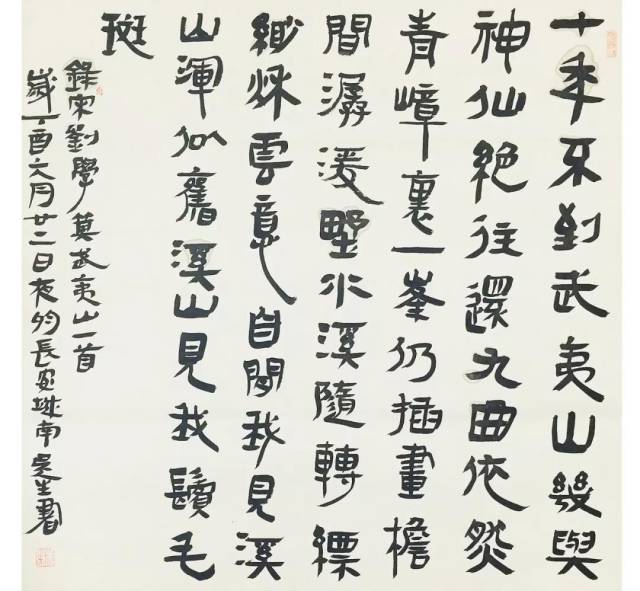 十年不到武夷山幾與
神仙絕往還九曲依然
青嶂裏一峯仍插畫檐
間潺湲野水溪隨轉縹
緲秋雲意自閒我見溪
山渾似舊溪山見我鬢毛
斑
錄宋劉學箕武夷山一首
歲丁酉六月廿二日夜於長安城南吳生書